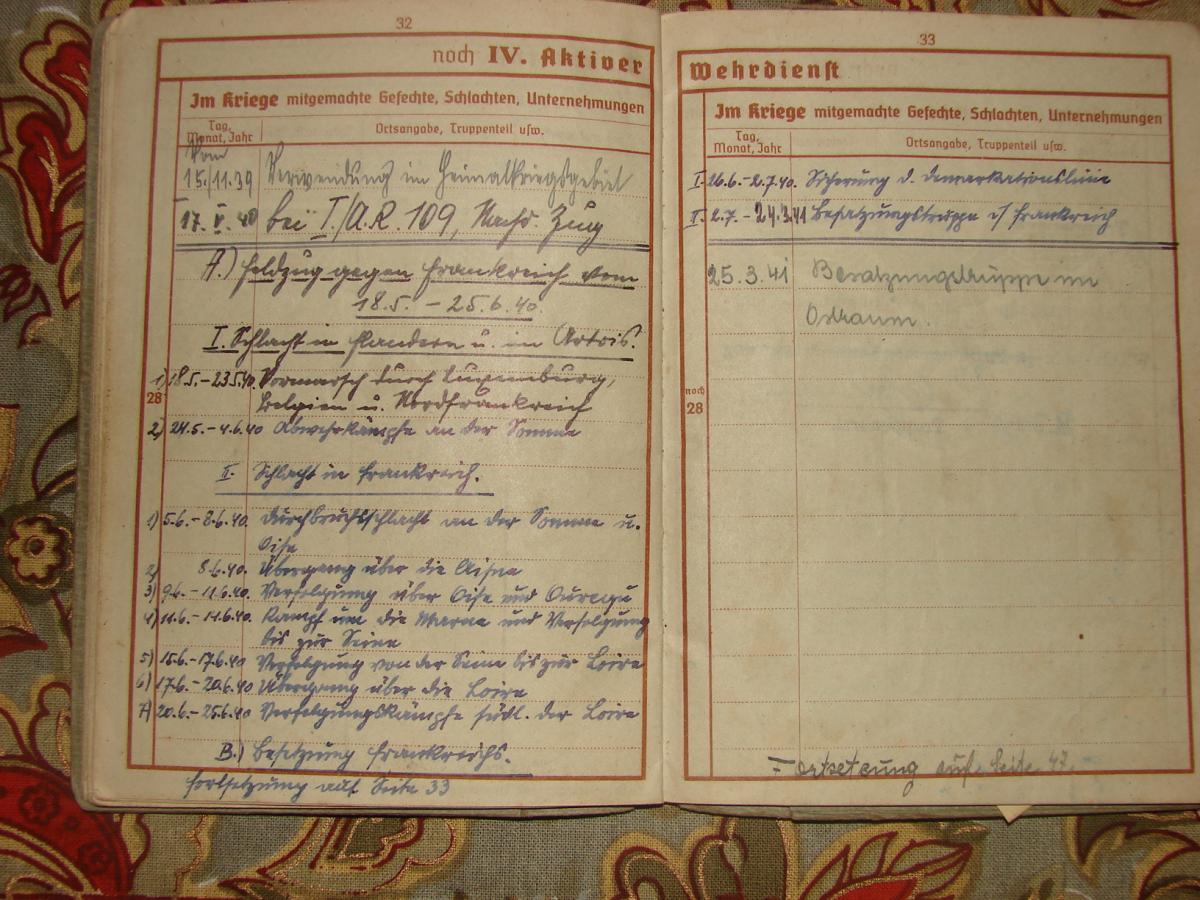 32
noch IV. Aktiver
Im Kriege mitgemachte Gefechte, Schlachten, Unternehmungen
Tag, Monat, Jahr
Ortsangabe, Truppenteil usw.
Vom
15.11.39 Verwendung im Heimatkriegsgebiet
17. V. 40 bei I./A.R. 109, Nachr. Zug
A.) Feldzug gegen Frankreich vom
18.5. – 25.6.40.
I. Schlacht in Flandern u. im Artois.
1) 18.5. – 23.5.40. Vormarsch durch Luxemburg,
28 Belgien u. Nordfrankreich
2) 24.5. – 4.6.40 Abwehrkämpfe an der Somme
II. Schlacht in Frankreich.
1) 5.6. – 8.6.40. Durchbruchsschlacht an der Somme u.
Oise
2) 8.6.40. Übergang über die Aisne
3) 9.6. – 11.6.40. Verfolgung über Oise und Ourcqu
4) 11.6. – 14.6.40. Kampf um die Marne und Verfolgung
bis zur Seine
5) 15.6. – 17.6.40 Verfolgung von der Seine bis zur Loire
6) 17.6. – 20.6.40 Übergang über die Loire
7) 20.6. – 25.6.40 Verfolgungskämpfe südl. der Loire
B.) Besetzung Frankreichs.
Fortsetzung auf Seite 33
33
Wehrdienst
Im Kriege mitgemachte Gefechte, Schlachten, Unternehmungen
Tag, Monat, Jahr
Ortsangabe, Truppenteil usw.
I. 26.6. – 2.7.40. Sicherung d. Demarkationslinie
II. 2.7. – 24.3.41 Besatzungstruppe i/ Frankreich
25.3.41 Besatzungstruppe im
Ostraum.
noch
28
Fortsetzung auf Seite 47.